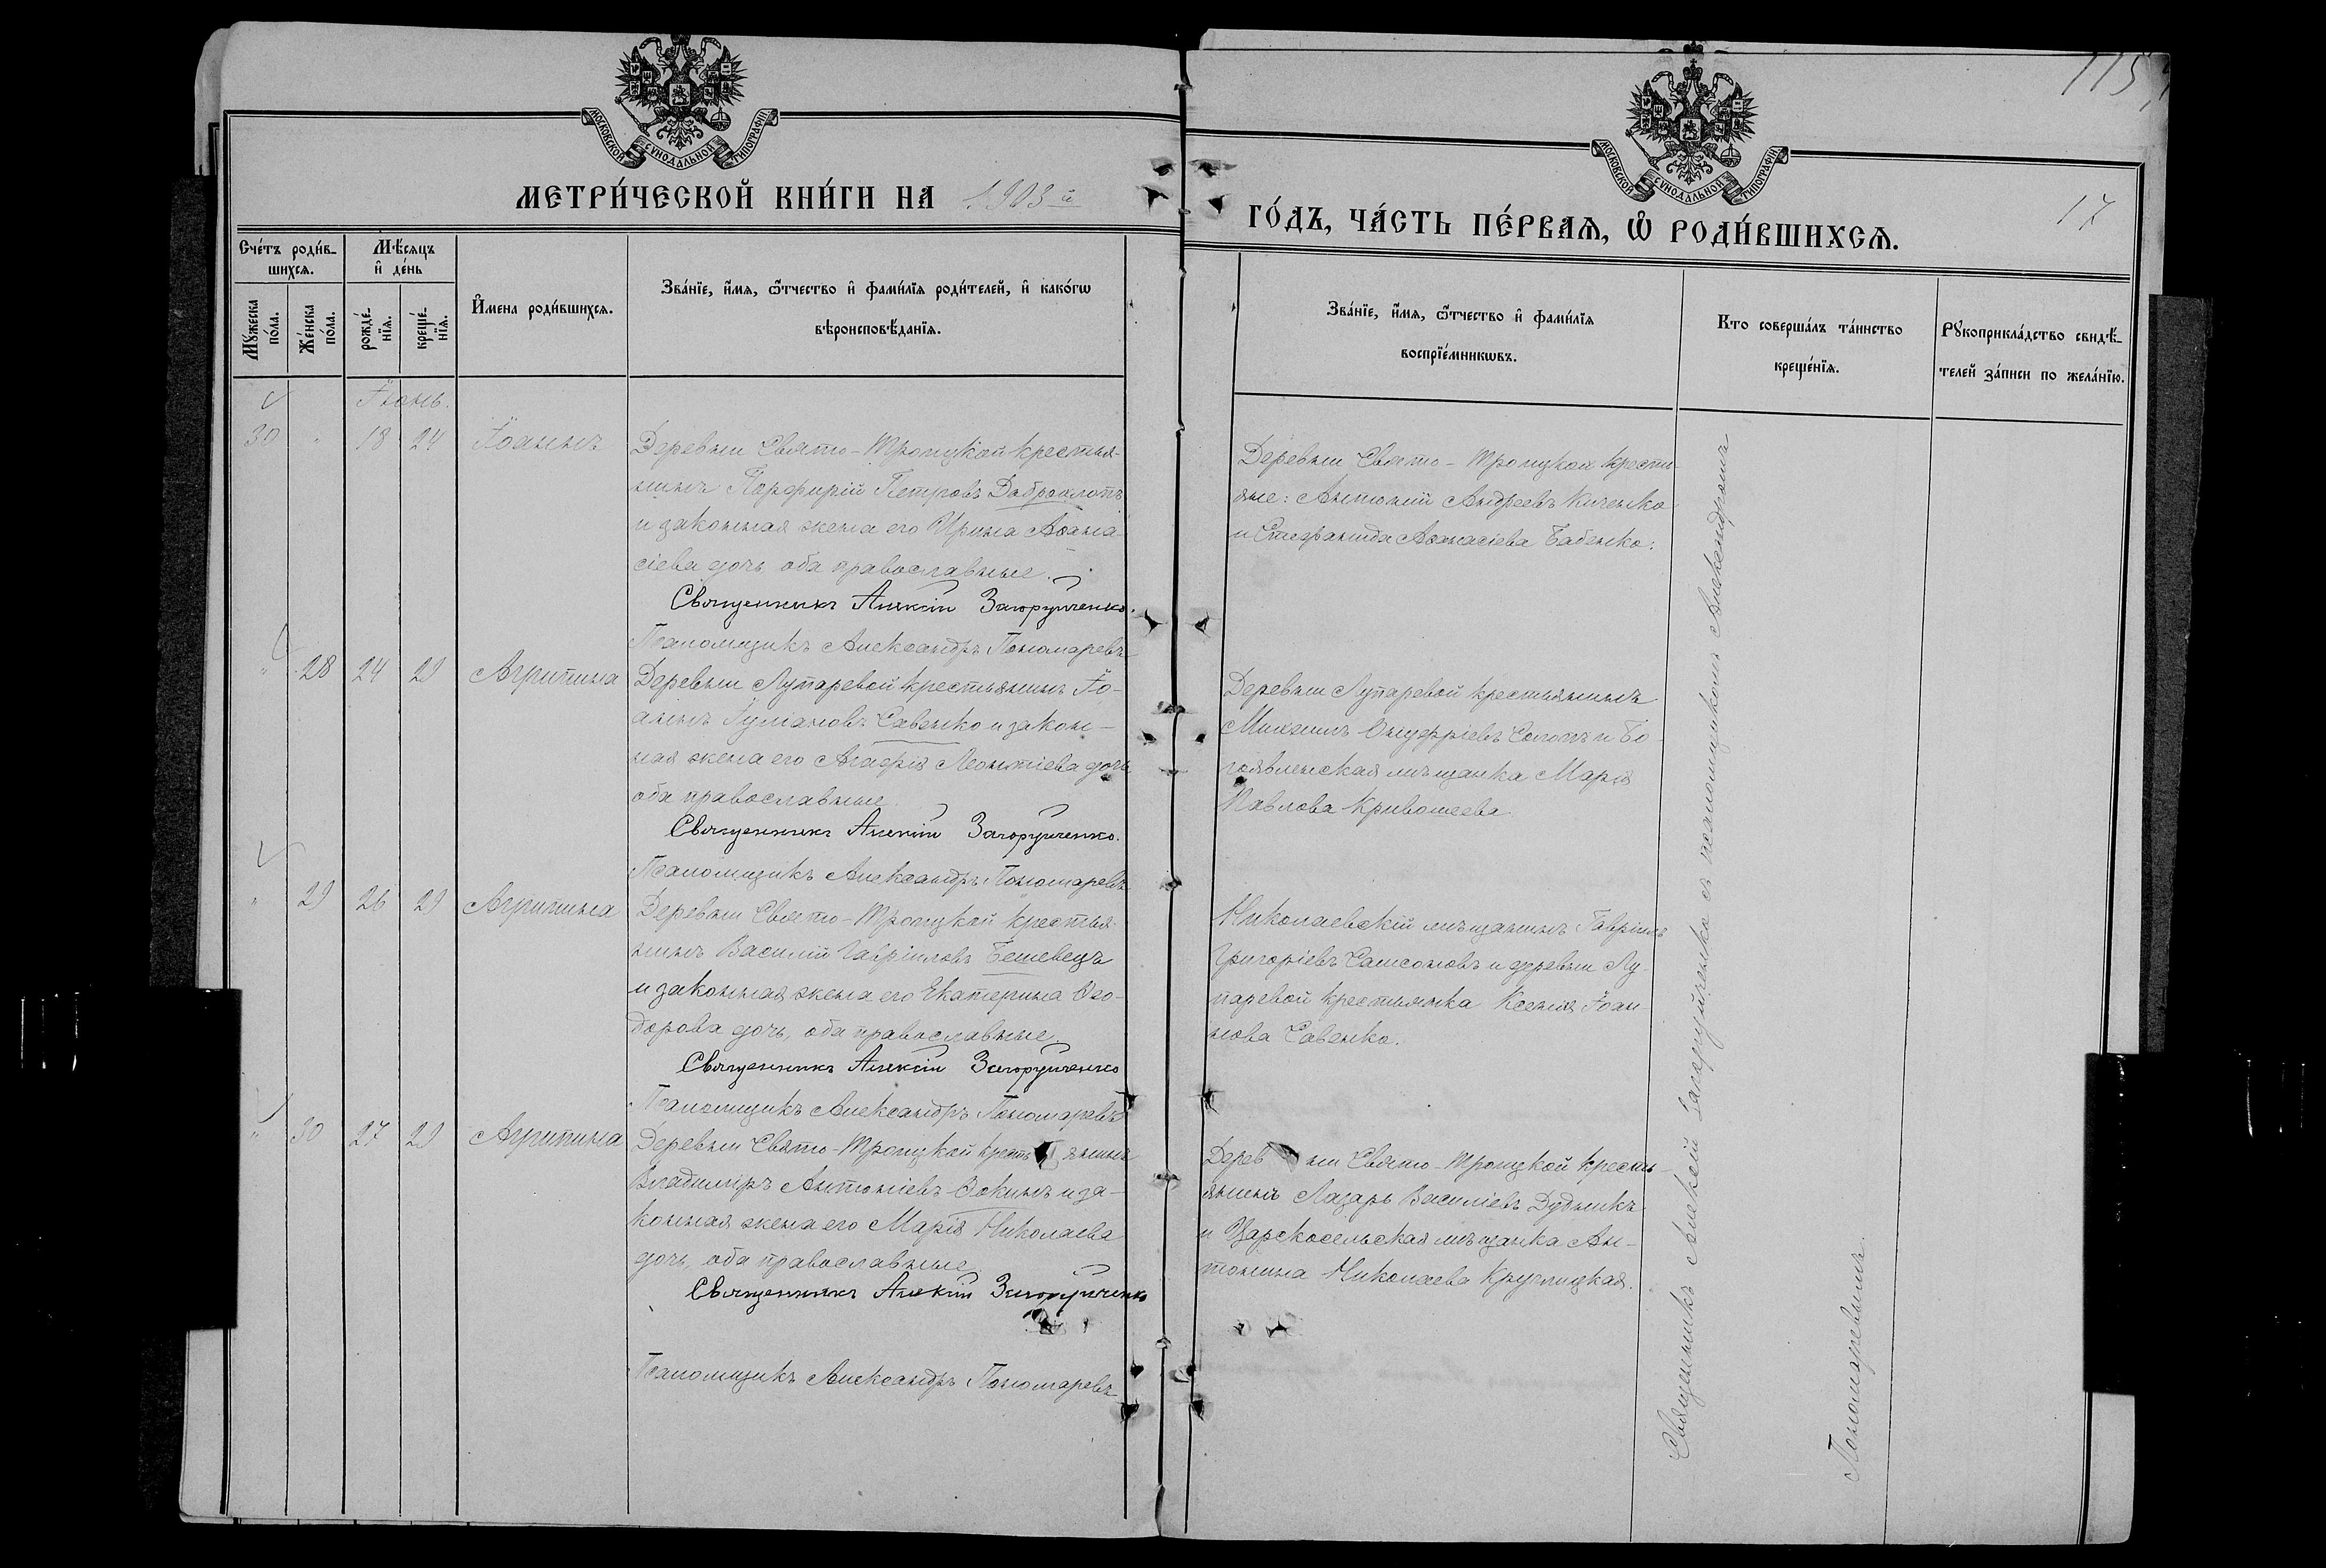 115
МОСКОВСКОЙ СѴНОДАЛЬНОЙ ТИПОГРАФІИ
МОСКОВСКОЙ СѴНОДАЛЬНОЙ ТИПОГРАФІИ
МЕТРИ́ЧЕСКОЙ КНИ́ГИ НА 1903й
ГО́ДЪ, ЧА́СТЬ ПЕ́РВАѦ, Ѡ РОДИ́ВШИХСѦ.
17
Сче́тъ роди́в-
шихсѧ.
Мѣ́сѧцъ
и҆ де́нь
Мꙋ́жеска
по́ла.
Же́нска
по́ла.
рожде́-
нїѧ.
креще́-
нїѧ.
И҆мена роди́вшихсѧ.
Зва́нїе, и҆́мѧ, ѻ҆́тчество и҆ фами́лїѧ роди́телей, и҆ како́гѡ
вѣроисповѣ́данїѧ.
Зва́нїе, и҆́мѧ, ѻ҆́тчество и҆ фами́лїѧ
воспрїе́мникѡвъ.
Кто соверша́лъ та́инство
креще́нїѧ.
Рꙋкоприкла́дство свидѣ́-
телей за́писи по жела́нїю.
Іюнь.
30 " 18 24 Іоаннъ
Деревни Свято-Троицкой крестья-
нинъ Порфирій Петровъ Доброхлотъ
и законная жена его Ирина Аѳана-
сіева дочь оба православные.
Священникъ Алексій Загоруйченко.
Псаломщикъ Александръ Пономаревъ
Деревни Свято-Троицкой кресть-
яне: Антоній Андреевъ Киченко
и Стефанида Аѳанасіева Бабенко.
" 28 24 29 Агрипина
Деревни Лупаревой крестьянинъ Іо-
аннъ Іуліановъ Савенко и закон-
ная жена его Агафія Леонтіева дочь
оба православные.
Священникъ Алексій Загоруйченко.
Псаломщикъ Александръ Пономаревъ
Деревни Лупаревой крестьянинъ
Михаилъ Онуфріевъ Солопъ и Бо-
гоявленская мѣщанка Марія
Павлова Кривошеева.
" 29 26 29 Агрипина
Деревни Свято-Троицкой крестья-
нинъ Василій Гавріиловъ Бешевецъ
и законная жена его Екатерина Ѳео-
дорова дочь, оба православные.
Священникъ Алексій Загоруйченко
Псаломщикъ Александръ Пономаревъ
Николаевскій мѣщанинъ Гавріилъ
Григоріевъ Самсоновъ и деревни Лу-
паревой крестьянка Ксенія Іоан-
нова Савенко.
" 30 27 29 Агрипина
Деревни Свято-Троицкой крестьянинъ
Владиміръ Антоніевъ Окинъ и за-
конная жена его Марія Николаева
дочь, оба православные.
Священникъ Алексій Загоруйченко
Псаломщикъ Александръ Пономаревъ
Деревни Свято-Троицкой кресть-
янинъ Лазарь Василіевъ Дудникъ
и Царскосельская мѣщанка Ан-
тонина Николаева Круглицкая.
Священникъ Алексій Загоруйченко съ псаломщикомъ Александромъ
Пономаревымъ.